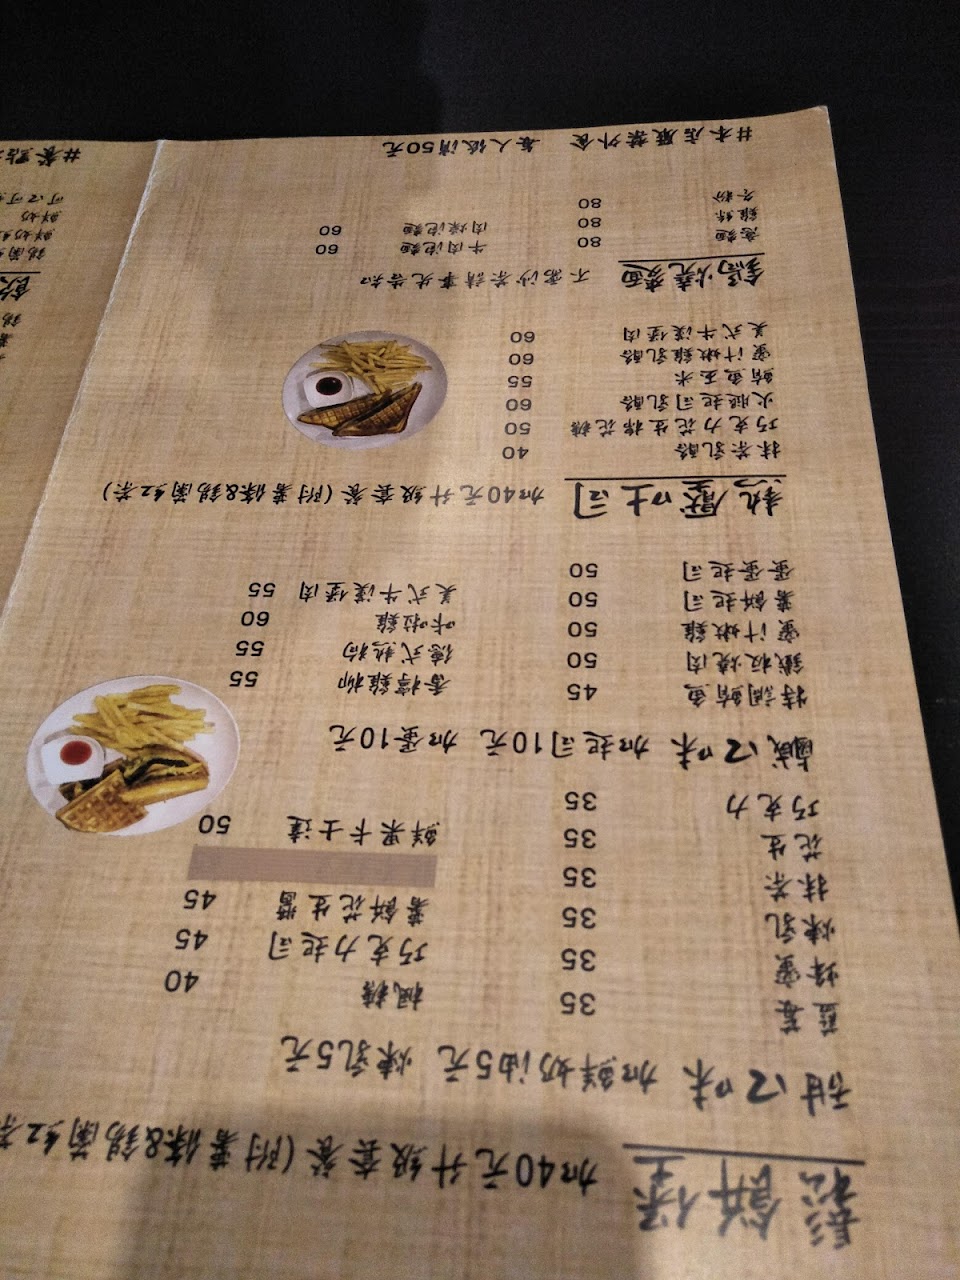 鬆餅堡 加40元升級套餐(附薯條&錫蘭紅茶
甜口味 加鮮奶油5元 煉乳5元
藍莓 35 楓糖 40
蜂蜜 35 巧克力起司 45
煉乳 35 薯餅花生醬 45
抹茶 35
花生 35 鮮果卡士達 50
巧克力 35
鹹口味 加起司10元 加蛋10元
特調鮪魚 45 香檸雞柳 55
鐵板燒肉 50 德式熱狗 55
蜜汁嫩雞 50 咔啦雞 60
薯餅起司 50 美式牛漢堡肉 55
起司 50
熱壓吐司 加40元升級套餐(附薯條&錫蘭紅茶)
抹茶乳酪 40
巧克力花生棉花糖 50
火腿起司乳酪 60
鮪魚玉米 55
蜜汁嫩雞乳酪 60
美式牛漢堡肉 60
鍋燒麵 不需沙茶請事先告知
意麵 80 牛肉泡麵 60
雞絲 80 肉燥泡麵 60
冬粉 80
#本店嚴禁外食 每人低消50元
錫
薯
飲
錫蘭
鮮奶
鮮奶
可口可
#餐點